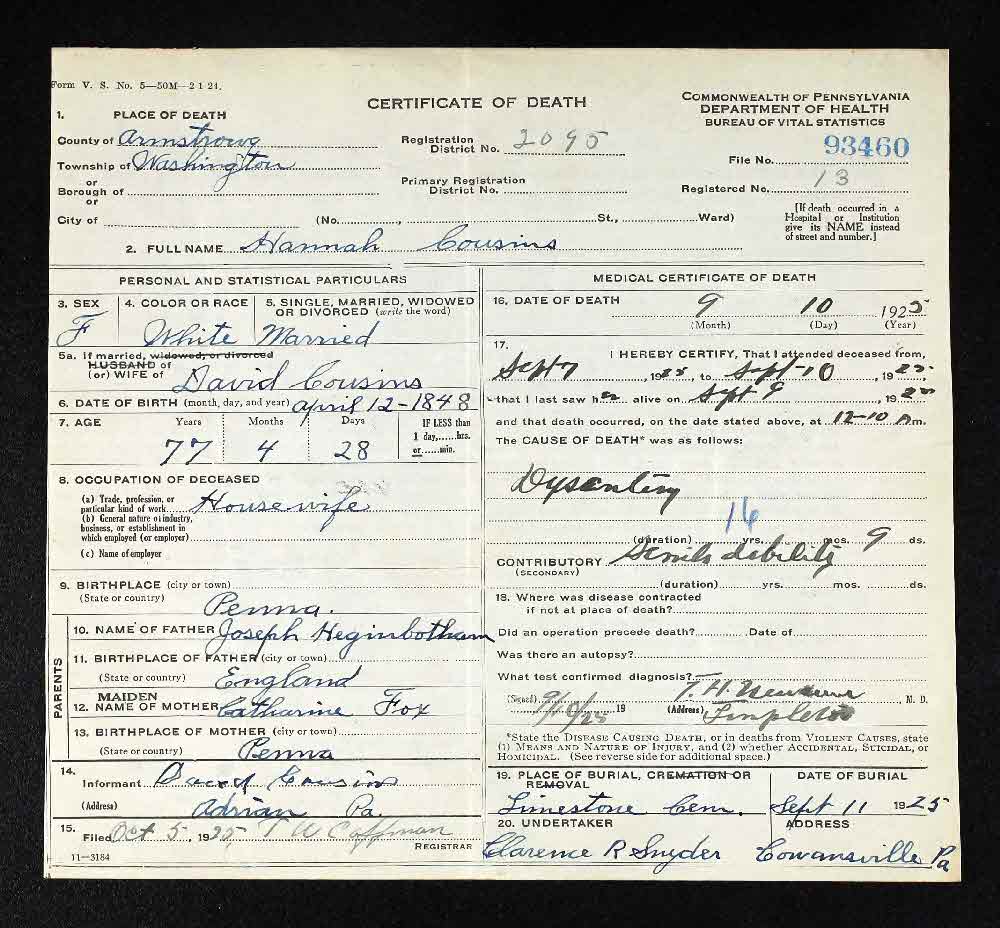 Form V. S. No. 5—50M—2 1 24.
CERTIFICATE OF DEATH
COMMONWEALTH OF PENNSYLVANIA
DEPARTMENT OF HEALTH
BUREAU OF VITAL STATISTICS
1. PLACE OF DEATH
County of Armstrong
Registration District No. 2095
File No. 93460
Township of Washington
or
Borough of
or
Primary Registration District No.
Registered No. 13
City of (No. , St., Ward)
[If death occurred in a Hospital or Institution give its NAME instead of street and number.]
2. FULL NAME Hannah Cousins
PERSONAL AND STATISTICAL PARTICULARS
3. SEX F
4. COLOR OR RACE White
5. SINGLE, MARRIED, WIDOWED OR DIVORCED (write the word) Married
5a. If married, widowed, or divorced
HUSBAND of
(or) WIFE of David Cousins
6. DATE OF BIRTH (month, day, and year) April 12-1848
7. AGE Years Months Days IF LESS than 1 day,......hrs. or......min.
77 4 28
8. OCCUPATION OF DECEASED
(a) Trade, profession, or particular kind of work Housewife
(b) General nature of industry, business, or establishment in which employed (or employer)
(c) Name of employer
9. BIRTHPLACE (city or town)
(State or country) Penna.
PARENTS
10. NAME OF FATHER Joseph Heginbotham
11. BIRTHPLACE OF FATHER (city or town)
(State or country) England
12. MAIDEN NAME OF MOTHER Catharine Fox
13. BIRTHPLACE OF MOTHER (city or town)
(State or country) Penna
14.
Informant David Cousins
(Address) Adrian Pa.
15.
Filed Oct 5, 1925 T W Coffman
REGISTRAR
11—3184
MEDICAL CERTIFICATE OF DEATH
16. DATE OF DEATH 9 10 1925
(Month) (Day) (Year)
17.
I HEREBY CERTIFY, That I attended deceased from,
Sept 7 1925, to Sept-10, 1925
that I last saw her alive on Sept 9, 1925
and that death occurred, on the date stated above, at 12-10 A m.
The CAUSE OF DEATH* was as follows:
Dysentery
16
(duration) yrs. mos. 9 ds.
CONTRIBUTORY Senile debility
(SECONDARY)
(duration) yrs. mos. ds.
18. Where was disease contracted
if not at place of death?
Did an operation precede death? Date of
Was there an autopsy?
What test confirmed diagnosis?
(Signed) T. H. M. D.
9/10/25 19 (Address) Templeton
*State the DISEASE CAUSING DEATH, or in deaths from VIOLENT CAUSES, state
(1) MEANS AND NATURE OF INJURY, and (2) whether ACCIDENTAL, SUICIDAL, or
HOMICIDAL. (See reverse side for additional space.)
19. PLACE OF BURIAL, CREMATION OR REMOVAL
DATE OF BURIAL
Limestone Cem. Sept 11 1925
20. UNDERTAKER
ADDRESS
Clarence R Snyder Cowansville Pa